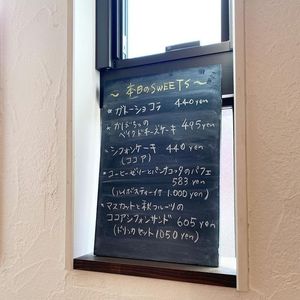 ～本日のSWEETS～
* ガトーショコラ 440yen
* かりぶろっの
ベイクドチーズケーキ 495yen
* シフォンケーキ 440yen
(ココア)
* コーヒーゼリーとパンナコッタのパフェ
583yen
(ハイボスティー付 1.000yen)
* マスカットと秋フルーツの
ココアシフォンサンド 605yen
(ドリンクセット1050yen)